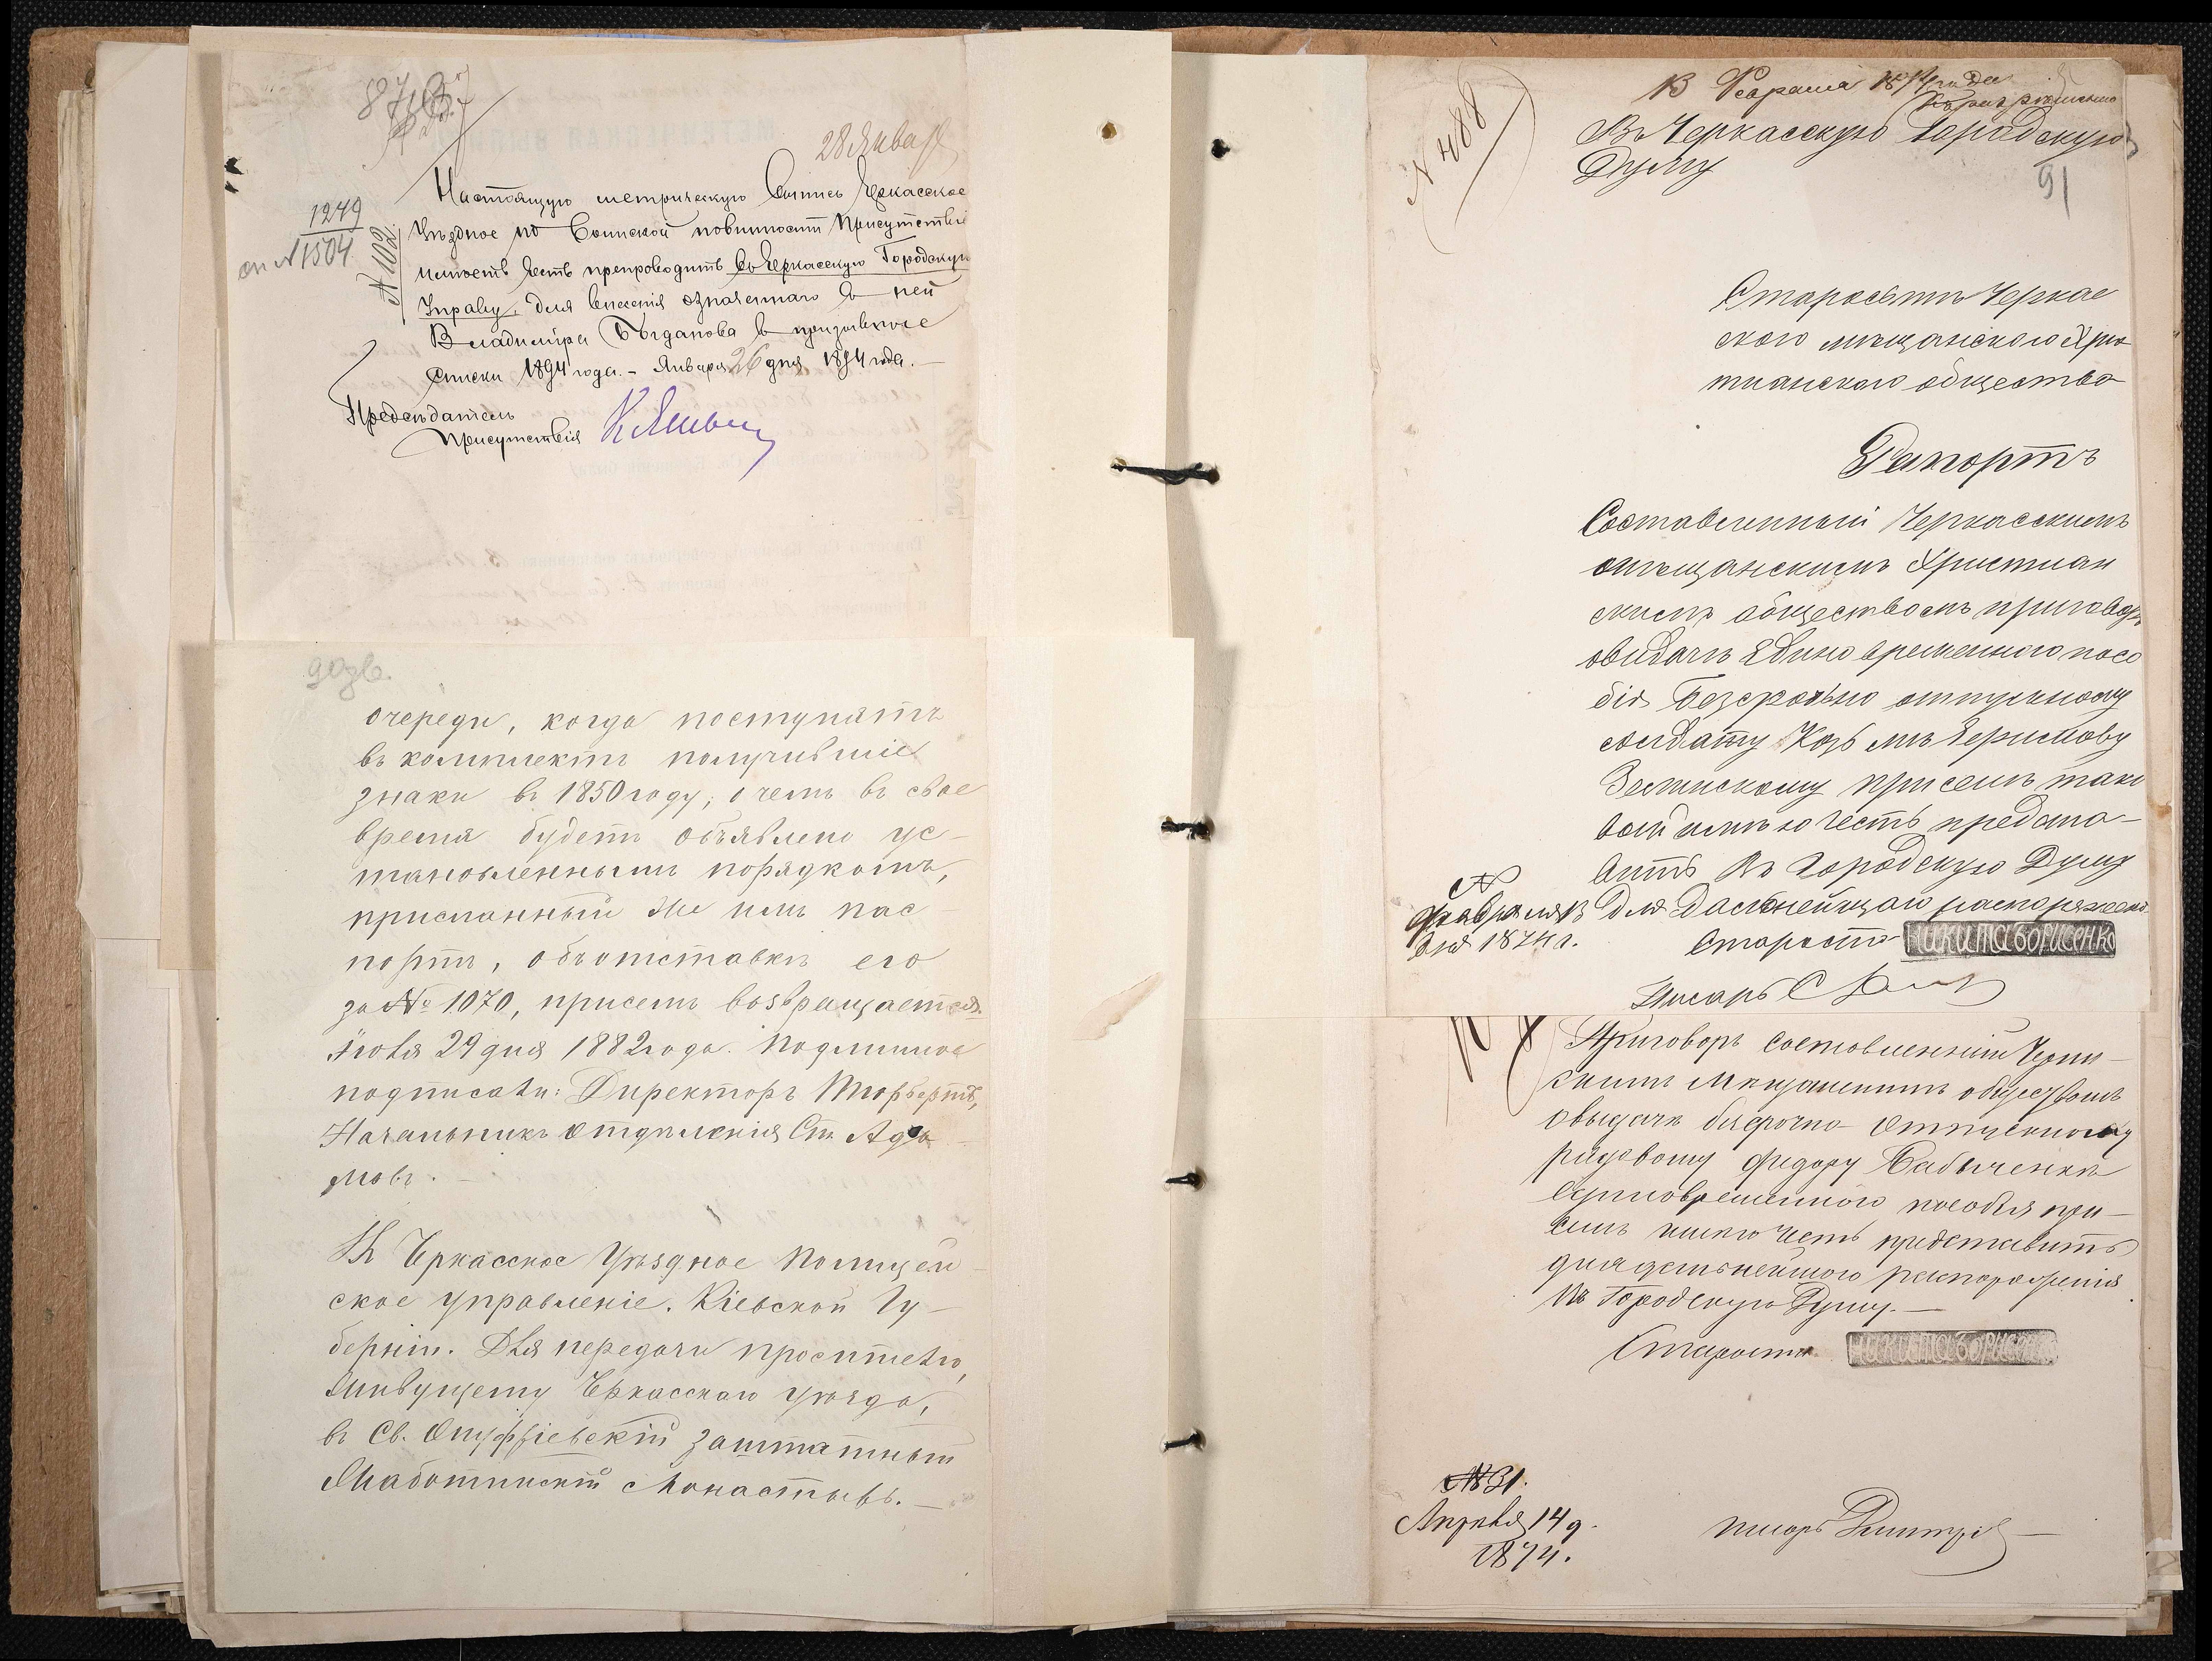 28 Янва
1249
1504
№ 102
Настоящую метрическую выпись Черкасское
Уѣздное по воинской повинности Присутствіе
имѣетъ честь препроводить въ Черкасскую Городскую
Управу, для внесенія означеннаго въ ней
Владиміра Богданова въ призывные
списки 1894 года. - Января 26 дня 1894 года. -
Предсѣдатель
Присутствія
очереди, когда поступятъ
въ комплектъ получившіе
знаки въ 1850 году; о чемъ въ свое
время будетъ объявлено ус-
тановленнымъ порядкомъ,
присланный же имъ пас-
портъ, объ отставкѣ его
за № 1070, присемъ возвращается.
Іюля 29 дня 1882 года. Подлинное
подписали: Директоръ
Начальникъ Отдѣленія Ст. Ада-
мовъ. -
Въ Черкасское Уѣздное Полицей-
ское управленіе. Кіевской Гу-
берніи. Для передачи просителю,
живущему Черкасскаго уѣзда,
въ Св. Онуфріевскій заштатный
Жаботинскій Монастырь. -
№ 488
13 Февраля 1874 года
Въ Черкасскую Городскую
Думу
91
Старосты Черкас
скаго мѣщанскаго Хрис
тианскаго общества
Рапортъ
Составленный Черкасскимъ
мѣщанскимъ Христиан
скимъ обществомъ приговоръ
о выдачѣ единовременнаго посо
бія безсрочно отпускному
солдату Козьмѣ
присемъ тако
вой имѣю честь предста-
вить Въ Городскую Думу
Для дальнейшаго распоряжені
№
Февраля 13
дня 1874 г.
Староста НИКИТА БОРИСЕНКО
Писарь
Приговоръ составленный Черка-
скимъ мещанскимъ обществомъ
о выдачѣ безсрочно отпускному
рядовому Федору Бабиченкѣ
единовременного пособія при-
семъ имею честь представить
для дальнейшого распоряженія
Въ Городскую Думу. -
Староста НИКИТА БОРИСЕНКО
№ 31.
Апрѣля 14 д.
1874.
писарь